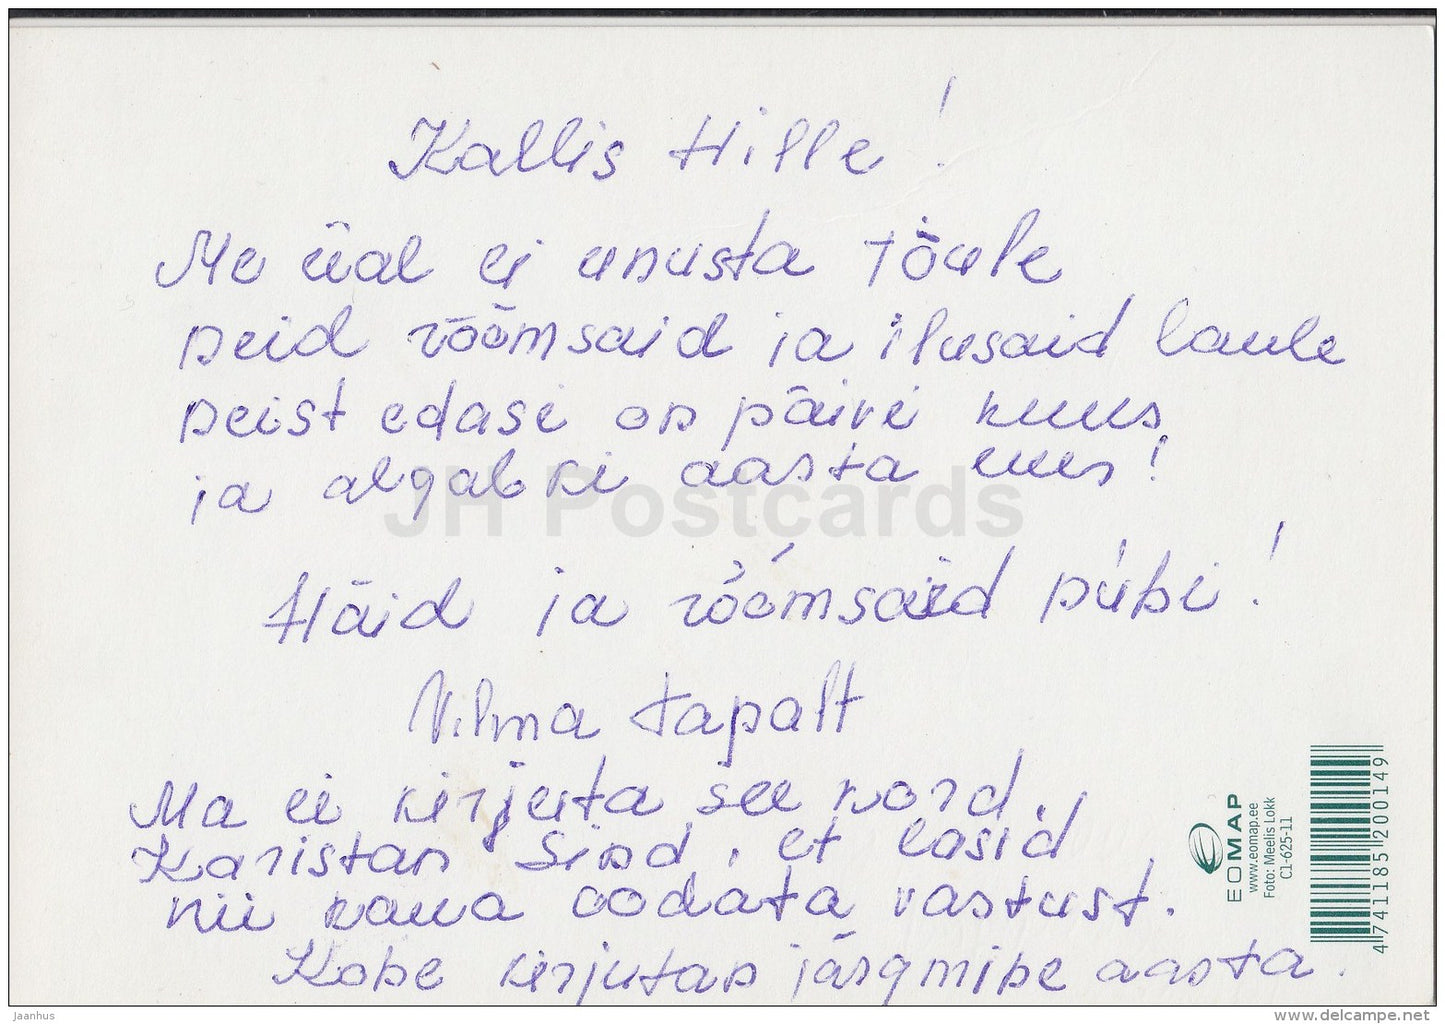 Kallis Hille!
Me iial ei unusta jõule
neid rõõmsaid ja ilusaid laule
neist edasi on päivi kuus
ja algab ki aasta uus!
JH Postcards
Häid ja rõõmsaid pühi!
Vilma Tapalt
Ma ei kirjuta see kord.
Karistan Sind, et lasid
nii kaua oodata vastust.
Kohe kirjutan järgmine aasta.
EOMAP
www.eomap.ee
Foto: Meelis Lokk
C1-625-11
4 741185 200149
Jaanhus
www.delcampe.net